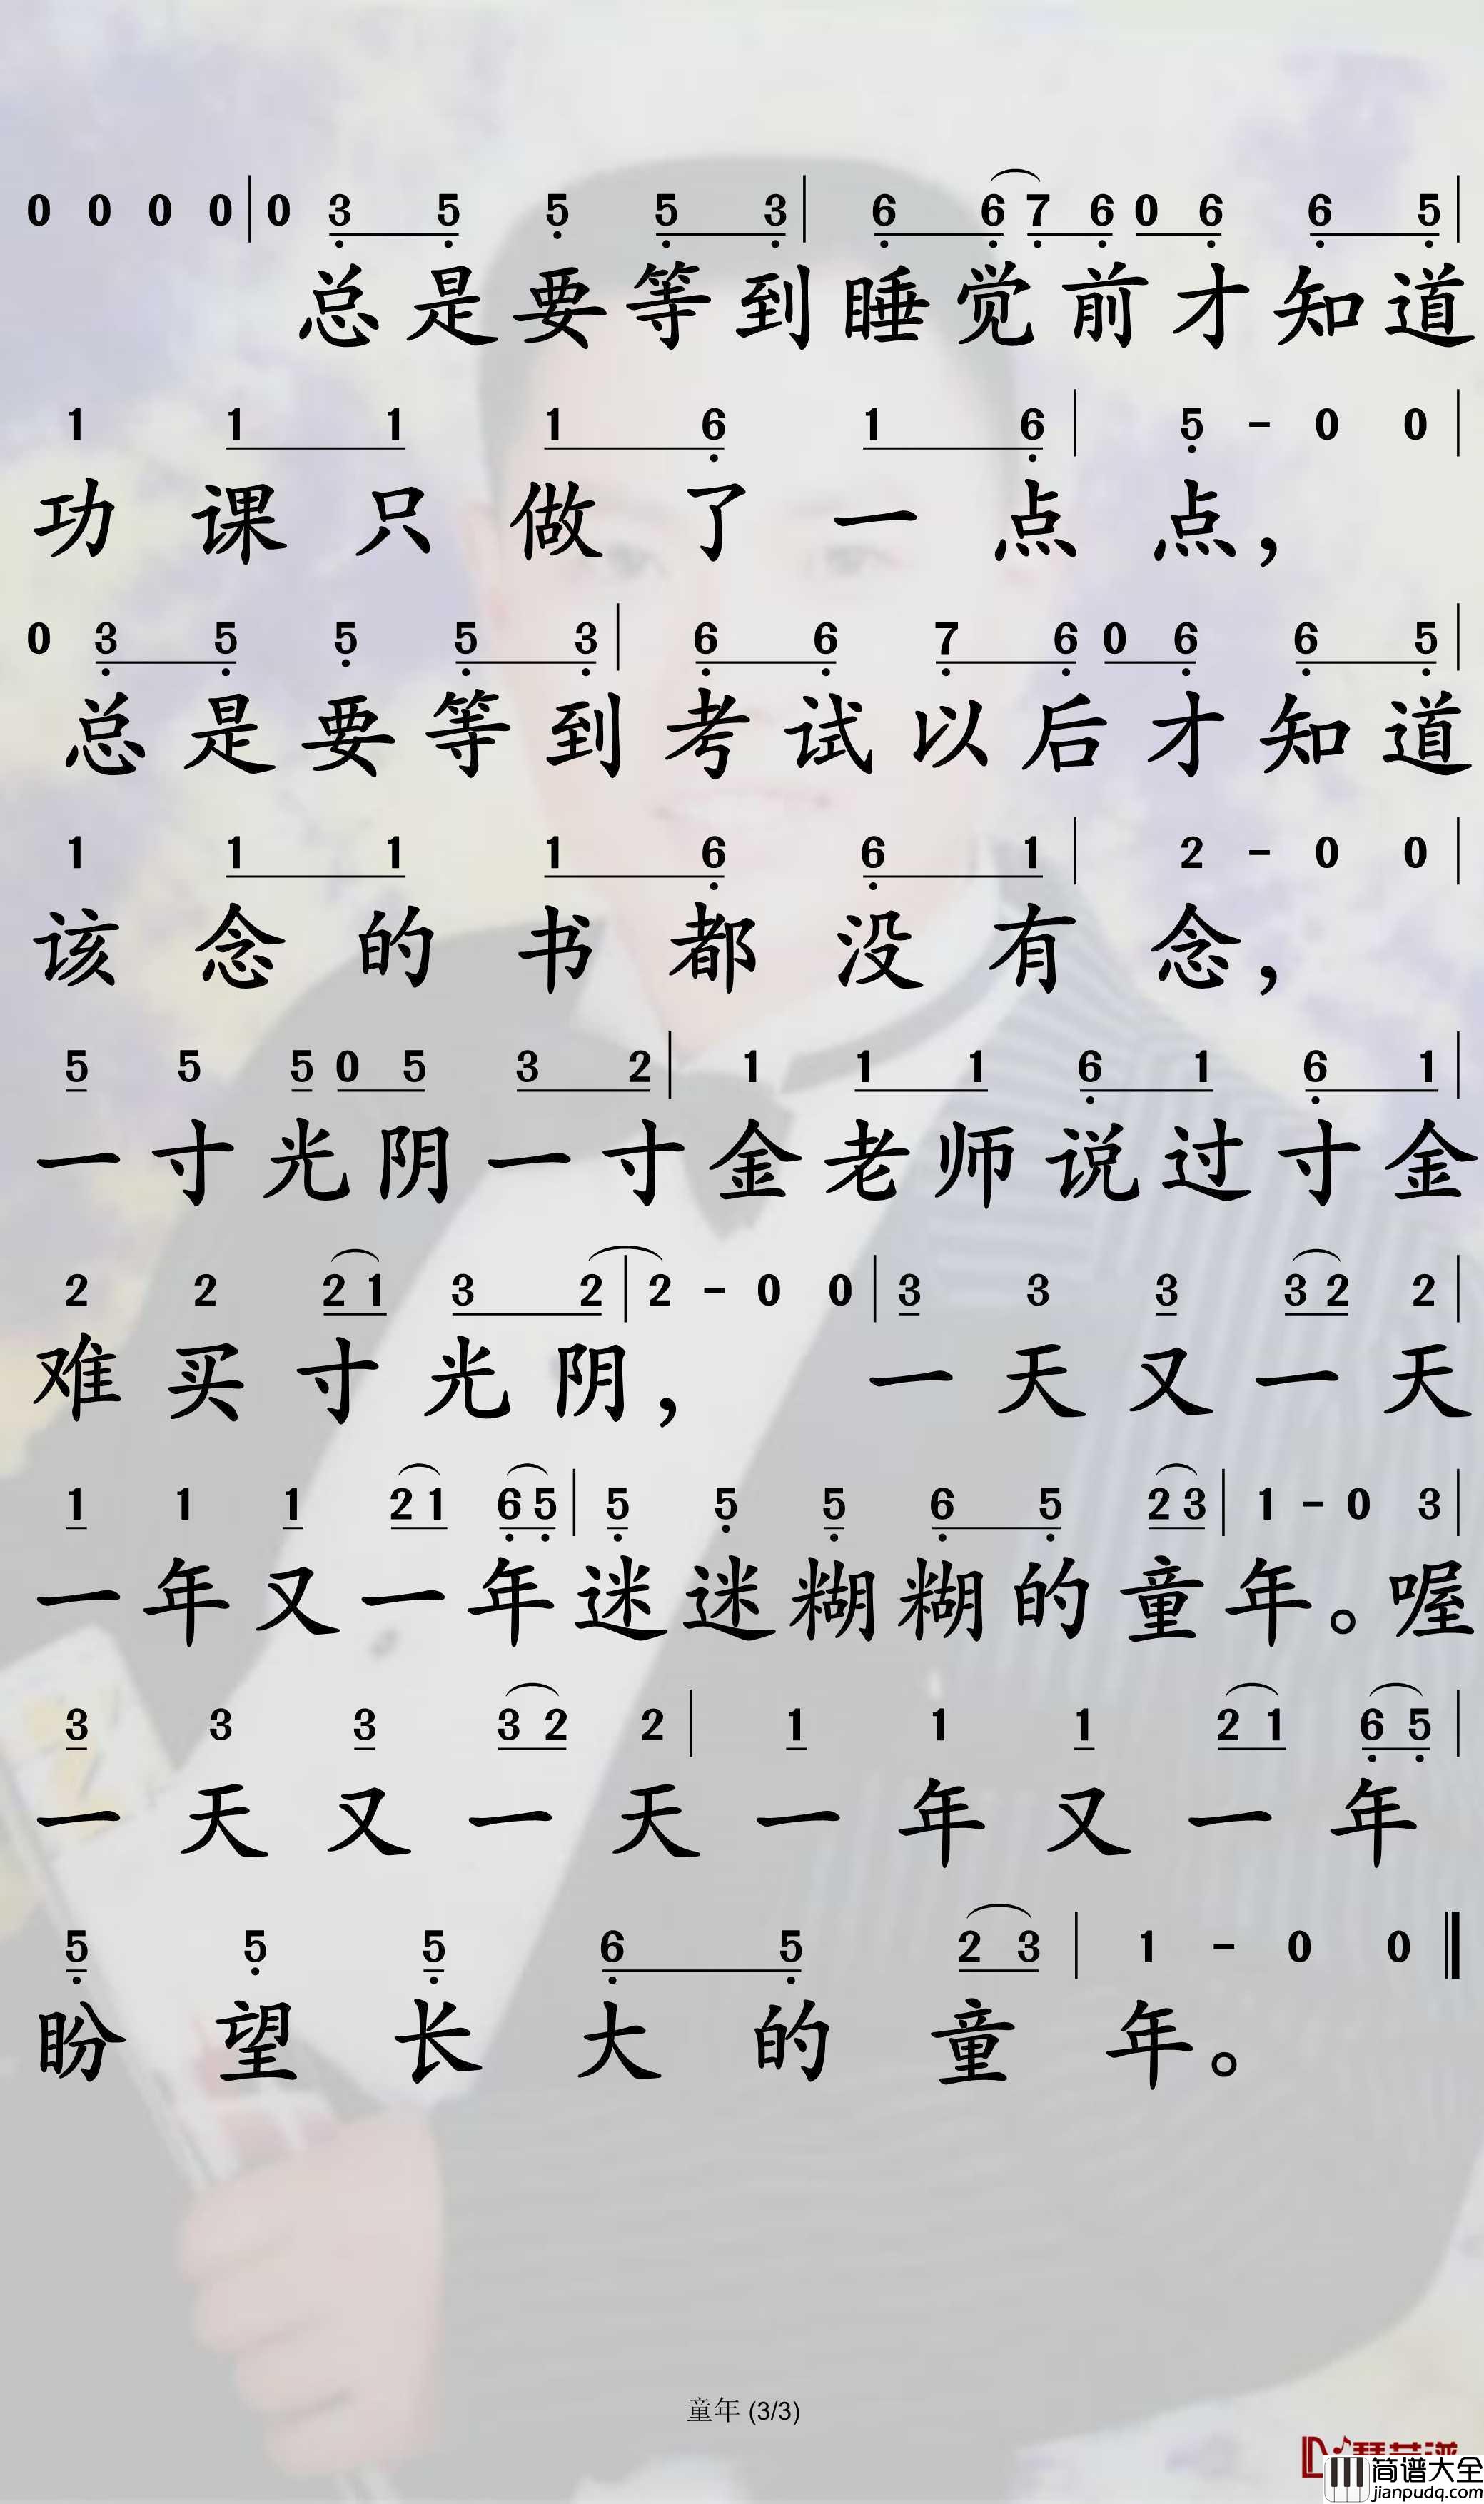 0 0 0 0 | 0 3 5 5 5 3 | 6 6 7 6 0 6 6 5 |
总是要等到睡觉前才知道
1 1 1 1 6 1 6 | 5 - 0 0 |
功课只做了一点点，
0 3 5 5 5 3 | 6 6 7 6 0 6 6 5 |
总是要等到考试以后才知道
1 1 1 1 6 6 1 | 2 - 0 0 |
该念的书都没有念，
5 5 5 0 5 3 2 | 1 1 1 6 1 6 1 |
一寸光阴一寸金老师说过寸金
2 2 2 1 3 2 | 2 - 0 0 | 3 3 3 3 2 2 |
难买寸光阴，一天又一天
1 1 1 2 1 6 5 | 5 5 5 6 5 2 3 | 1 - 0 3 |
一年又一年迷迷糊糊的童年。喔
3 3 3 3 2 2 | 1 1 1 2 1 6 5 |
一天又一天一年又一年
5 5 5 6 5 2 3 | 1 - 0 0 ‖
盼望长大的童年。
童年 (3/3)
简谱大全
jianpudq.com